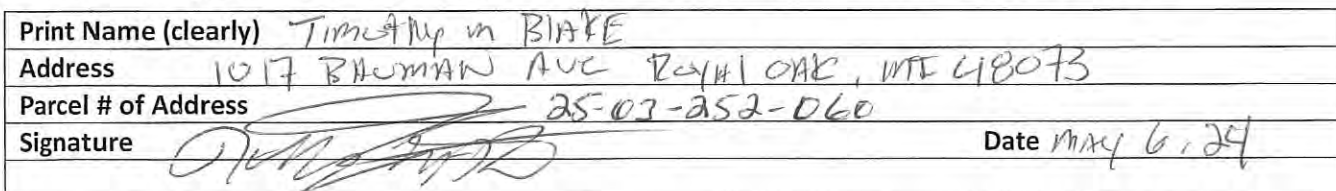 Print Name (clearly) Timothy m BlAKE
Address 1017 BAUMAN AVE ROYAl OAK, MI 48073
Parcel # of Address 25-03-252-060
Signature Date MAY 6, 24